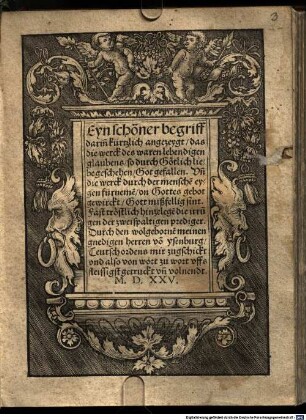 3
Eyn schöner begriff
darin̄ kürtzlich angezeygt / das
die werck des waren lebendigen
glaubens / so durch Götlich lie
be geschehen / Got gefallen. Vñ
die werck durch der menschē ey
gen fürnemē / on Gottes gebot
gewirckt / Gott mißfellig sint.
Fast tröstlich hinzelegē die irrun
gen der zweyspaltigen prediger.
Durch den wolgebornē meinen
gnedigen herren vō Ysenburg /
Teutschordens mir zugschickt
vnd also von wort zu wort vff
fleissigst getruckt vñ volnendt.
M. D. XXV.